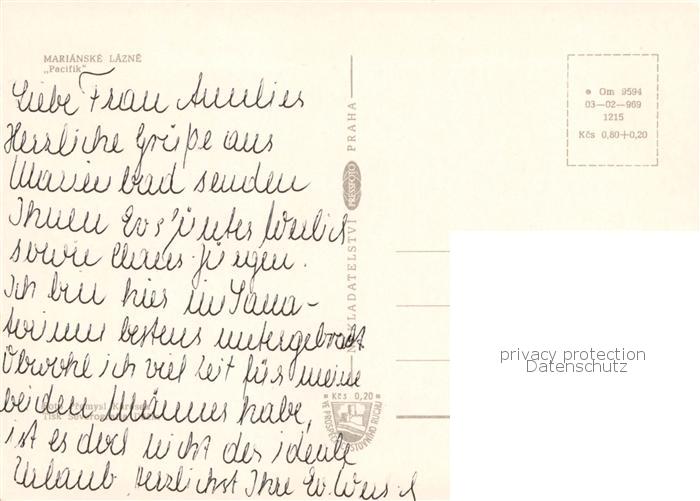 MARIÁNSKÉ LÁZNĚ
„Pacifik"
Liebe Frau Annlies
Herzliche Grüße aus
Marienbad senden
Ihnen
sowie Claus-Jürgen.
Ich bin hier im Sana-
torium bestens untergebracht
Obwohl ich viel Zeit für meine
beiden Männer habe,
ist es doch nicht der ideale
Urlaub. Herzlichst Ihre
NAKLADATELSTVÍ PRESSFOTO PRAHA
Om 9594
03—02—969
1215
Kčs 0,80+0,20
Kčs 0,20
VE PROSPĚCH CESTOVNÍHO RUCHU
privacy protection
Datenschutz